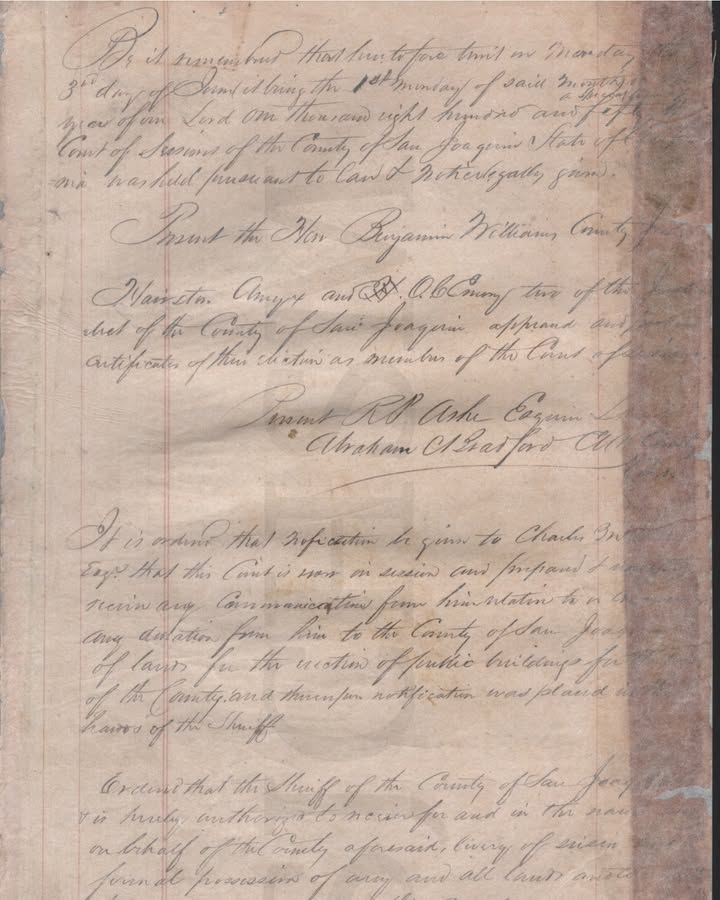 Be it remembered that heretofore towit on Monday
3rd day of June it being the 1st monday of said month
a special
year of our Lord one thousand eight hundred and fifty
Court of Sessions of the County of San Joaquin State of
nia was held pursuant to law & notice legally given.
Present the Hon Benjamin Williams County
Hairston Amyx and O.C. Emory two of the
of the County of San Joaquin, appeared and
certificates of their election as member of the Court of
Present R P Ashe Esquire
Abraham C Bradford
It is ordered that notification be given to Charles
Esqr. that this Court is now in session and prepared to
receive any Communication from him relation to
any donation from him to the County of San Joaq
of lands for the erection of public buildings for
of the County and thereupon notification was placed in the
hands of the Sheriff
Ordered that the Sheriff of the County of San Joaq
is hereby authorized to receive for and in the name
on behalf of the County aforesaid, livery of seisin
formal possession of any and all lands